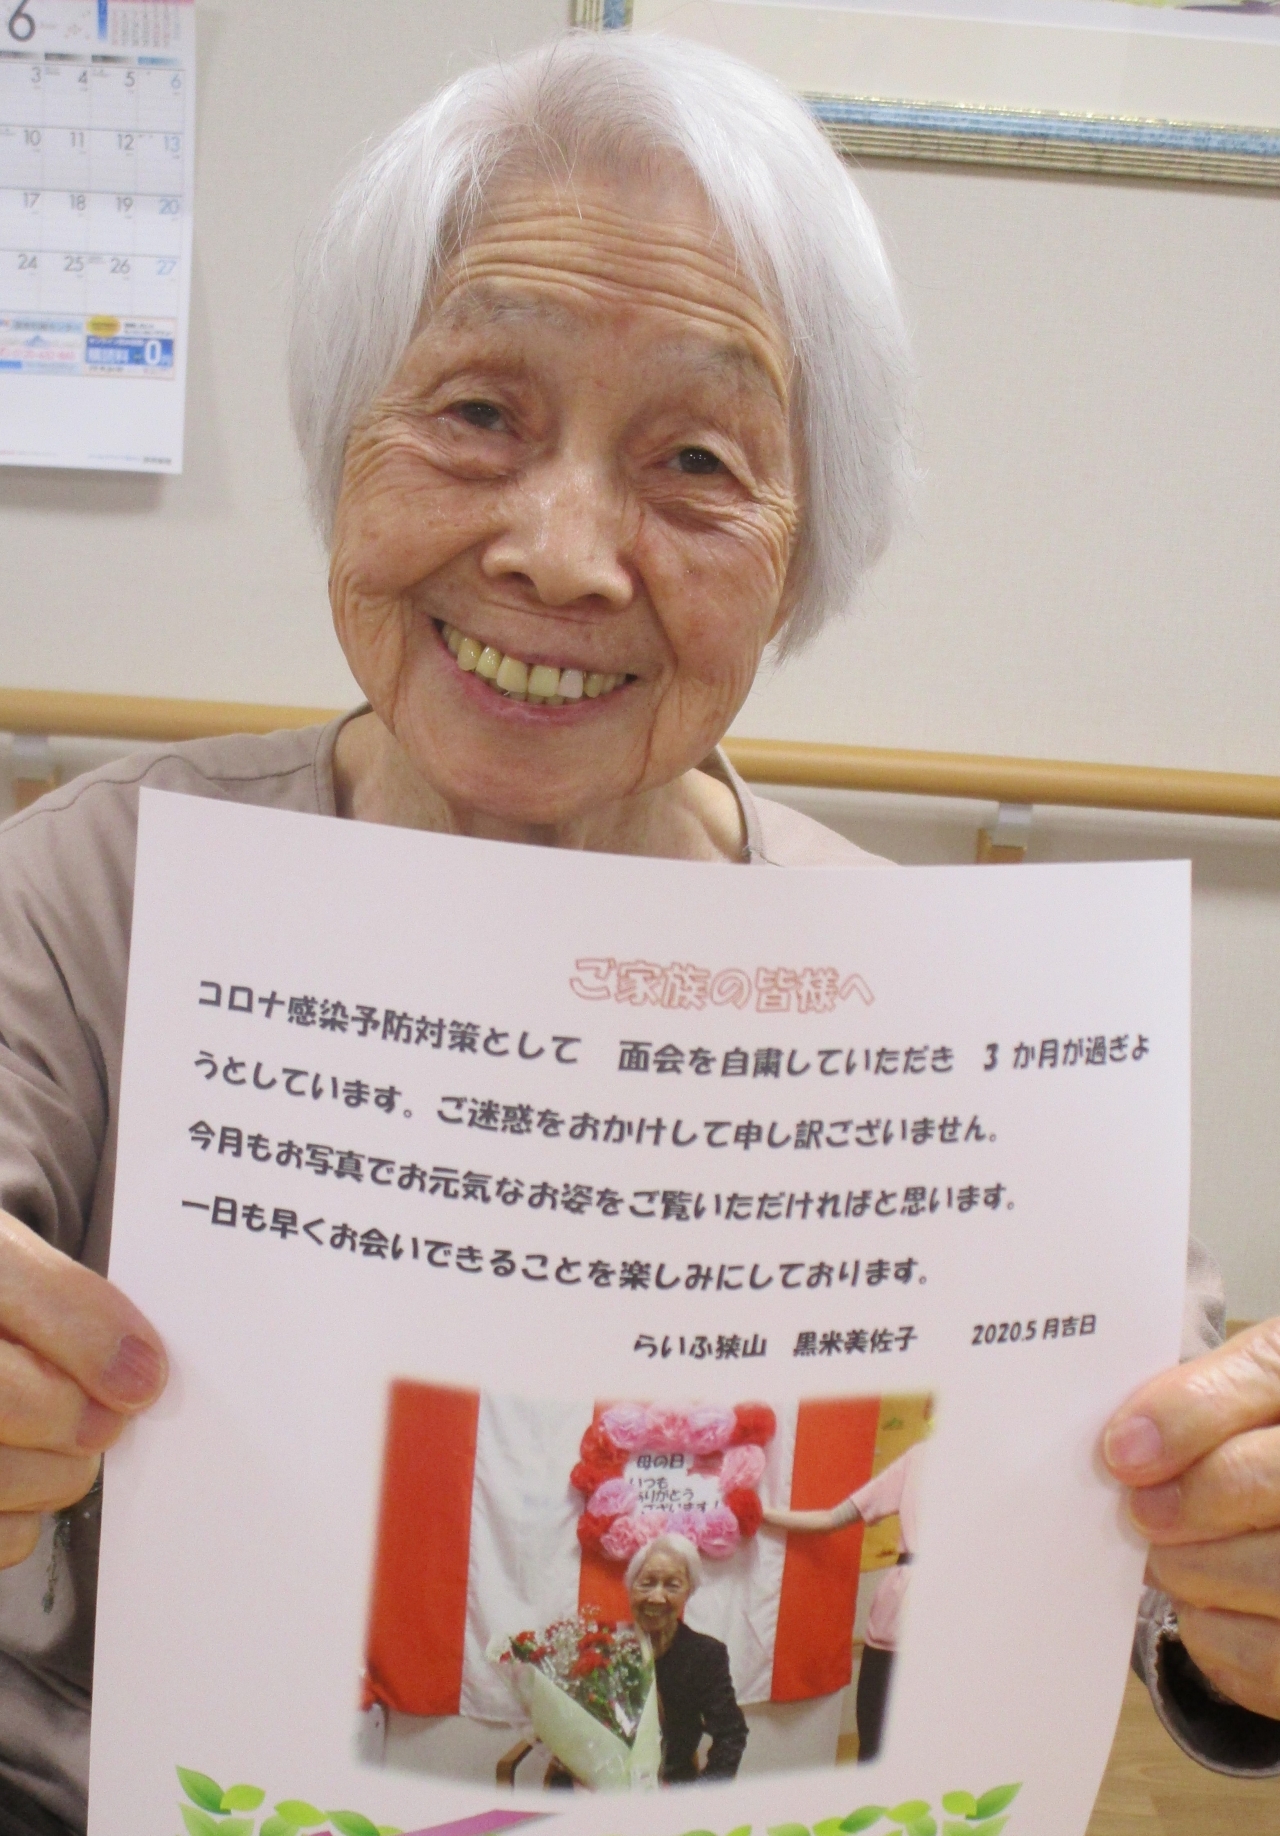 6
3 4 5 6
10 11 12 13
17 18 19 20
24 25 26 27
0
ご家族の皆様へ
コロナ感染予防対策として 面会を自粛していただき 3か月が過ぎよ
うとしています。ご迷惑をおかけして申し訳ございません。
今月もお写真でお元気なお姿をご覧いただければと思います。
一日も早くお会いできることを楽しみにしております。
らいふ狭山 黒米美佐子 2020.5月吉日
母の日
いつも
ありがとう
ございます!